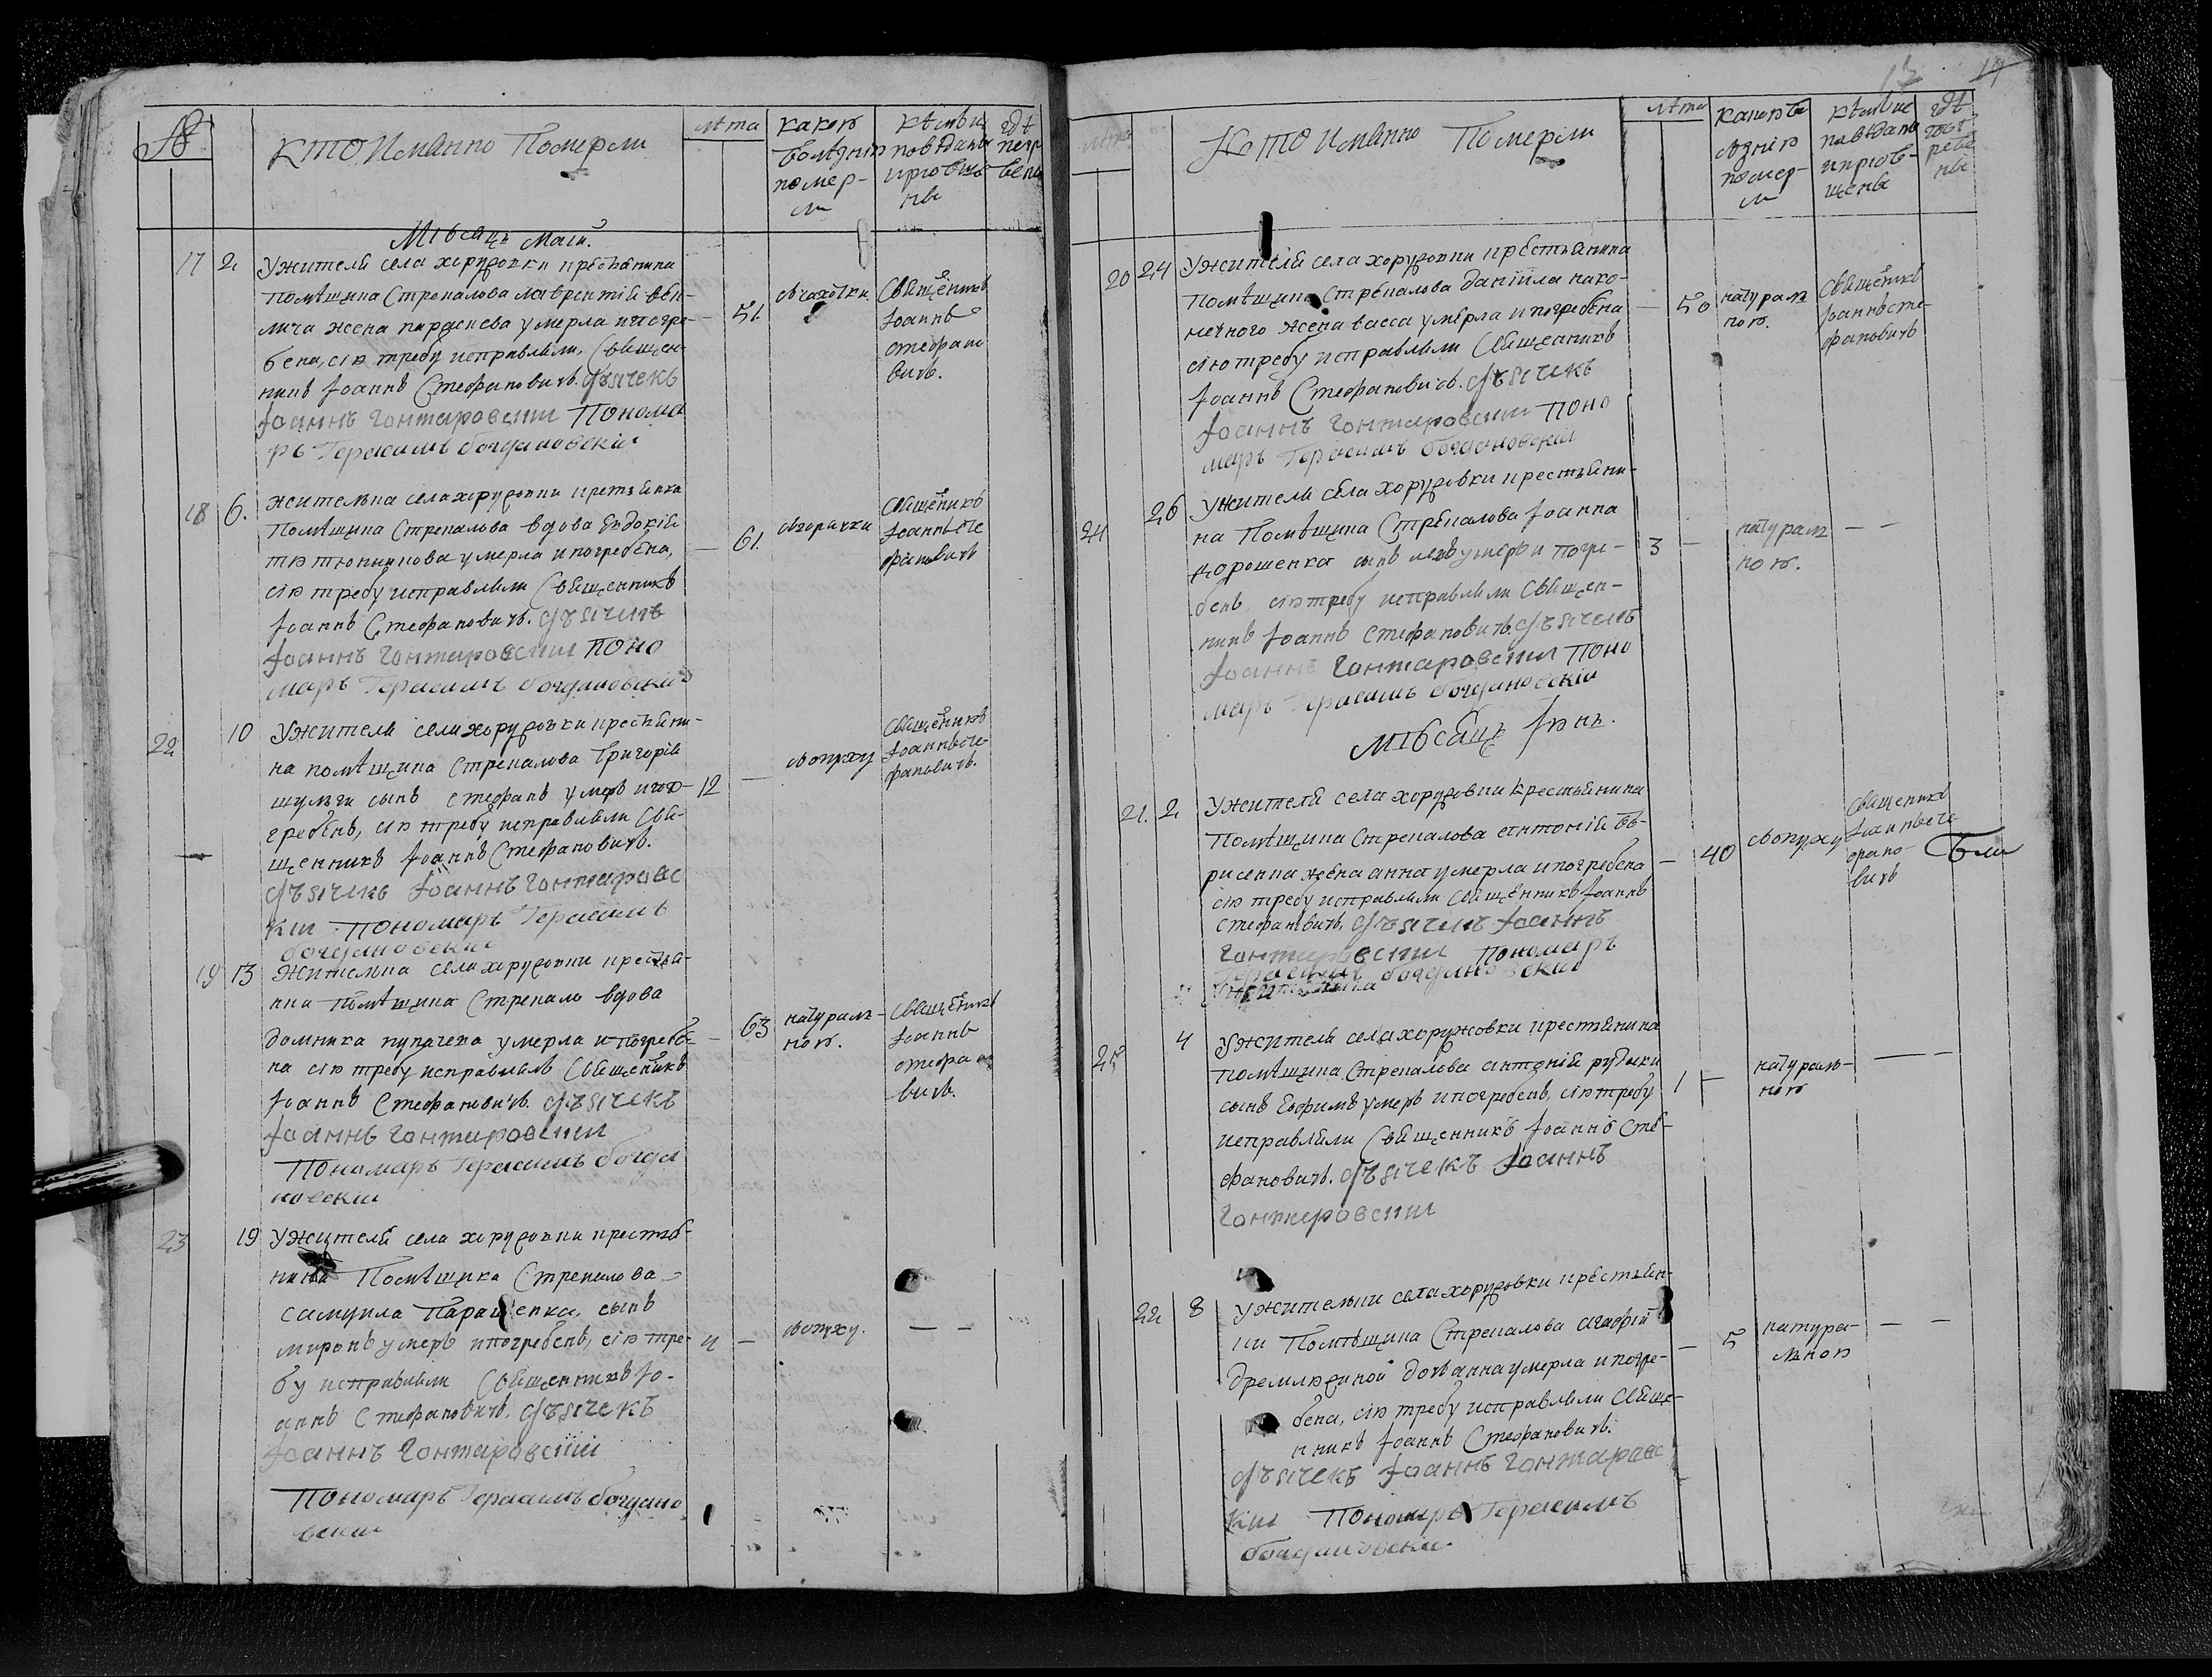 Кто Имянно Померли
лѣта
какою
болѣзнію
помер-
ли
Кѣмъ и
повѣданы
иріобщѣ-
ны
гдѣ
погр
бены
Мѣсяцъ Маій.
17 2 Ужителя села хоружовки крестьянина
помѣщика Стрекалова лаврентій вен-
лича жена параскева умерла ипогре-
бена, сію требу исправляли, Священ-
никъ Іоаннъ Стефановичъ. Дьячекъ
Іоаннъ Гонтаровскии Понома
рь Герасимъ богдановскіи
51. чахотки
Священникъ
Іоаннъ
стефано
вичъ.
18 6. жителка села хоружовки кретянка
Помѣщика Стрекалова вдова Евдокія
тютюнникова умерла ипогребена,
сію требу исправляли Священникъ
Іоаннъ Стефановичъ. Дьячекъ
Іоаннъ Гонтаровскии Поно
марь Герасимъ богдановскіи
61. горячки
Священникъ
Іоаннъ Сте
фановичъ
22 10 Ужителя села хоружовки крестьяни-
на помѣщика Стрекалова Григорія
шульги сынъ стефанъ умеръ ипо-
гребенъ, сію требу исправляли Свя-
щенникъ Іоаннъ Стефановичъ.
Дьячекъ Іоаннъ Гонтаровс
кіи Пономарь Герасимъ
богдановскіи
12 опуху
Священникъ
Іоаннъ Сте-
фановичъ.
19 13 Жителка села хоружовки крестья-
нка помѣщика Стрекало вдова
домника пугачева умерла и погребе-
на сію требу исправлялъ Священникъ
Іоаннъ Стефановичъ. Дьячекъ
Іоаннъ Гонтаровскии
Пономарь Герасимъ богда
новскіи
63 натурал-
ною.
Священникъ
Іоаннъ
стефано
вичъ.
23 19 Ужителя села хоружовки крестья-
нина Помѣщика Стрекалова
самуила Паращенка, сынъ
миронъ умеръ ипогребенъ, сію тре-
бу исправляли Священникъ Іо-
аннъ Стефановичъ. Дьячекъ
Іоаннъ Гонтаровскіи
Пономарь Герасимъ богдано
вскіи
4 — опуху. — —
19
лѣта
Кто Имянно Померли
лѣта
какою бо
лѣзнію
помер-
ли
Кѣмъ ис
повѣданы
ипріоб-
щены
гдѣ
погъ
ребе
ны
20 24 Ужителя села хоружовки крестьянина
Помѣщика Стрекалова даніила нако-
нечного жена васса умерла и погребена
сію требу исправляли Священникъ
Іоаннъ Стефановичъ. Дьячекъ
Іоаннъ Гонтаровскии Поно
марь Герасимъ богдановскіи
— 50 натурал
ною.
Священникъ
Іоаннъ Сте-
фановичъ
24 26 Ужителя села хоружовки крестьяни-
на Помѣщика Стрекалова Іоанна
дорошенка сынъ левъ умеръ и погре-
бенъ сію требу исправляли Священ-
никъ Іоаннъ Стефановичъ. Дьячекъ
Іоаннъ Гонтаровскии Поно
марь Герасимъ богдановскіи
3 — натурал
ною. — —
Мѣсяцъ Іюнь.
21. 2 Ужителя села хоружовки крестьянина
Помѣщика Стрекалова антоній бо-
рисенка жена анна умерла ипогребена
сію требу исправляли Священникъ Іоаннъ
Стефановичъ, Дьячекъ Іоаннъ
Гонтаровскии Пономарь
Герасимъ богдановскіи
— 40 опуху
Священникъ
Іоаннъ Сте
фано-
вичъ
25 4 Ужителя села хоружовки крестьянина
помѣщика Стрекалова антоній рудыки
сынъ Ефимъ умеръ ипогребенъ, сію требу
исправляли Священникъ Іоаннъ Сте-
фановичъ. Дьячекъ Іоаннъ
Гонтаровскии
1 — натурал-
ною — —
22 8 Ужителки села хоружовки крестьян-
ки Помѣщика Стрекалова агафіи
дремлюгиной дочь анна умерла и погре-
бена, сію требу исправляли Свяще-
нникъ Іоаннъ Стефановичъ.
Дьячекъ Іоаннъ Гонтаровс
кіи Пономарь Герасимъ
богдановскіи
— 5 натура-
лною — —